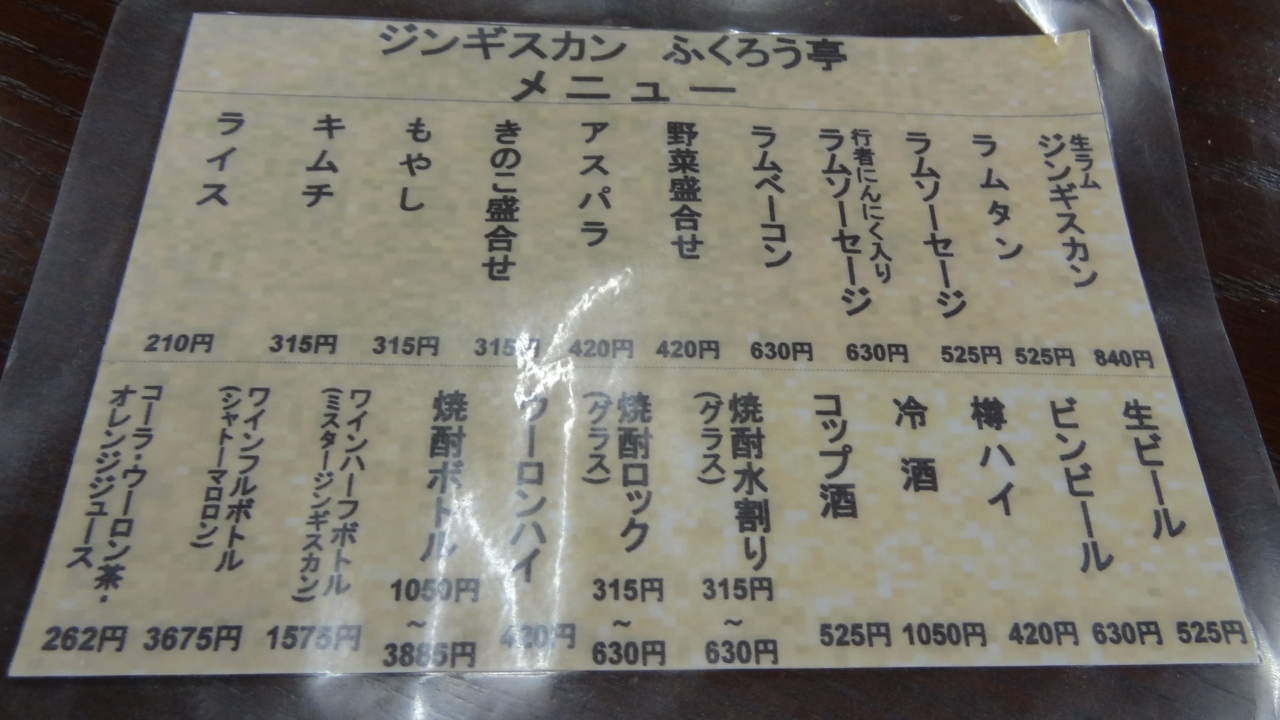 ジンギスカン ふくろう亭
メニュー
生ラム
ジンギスカン
840円
ラムタン
525円
ラムソーセージ
525円
行者にんにく入り
ラムソーセージ
630円
ラムベーコン
630円
野菜盛合せ
420円
アスパラ
420円
きのこ盛合せ
315円
もやし
315円
キムチ
315円
ライス
210円
生ビール
525円
ビンビール
630円
樽ハイ
420円
冷酒
1050円
コップ酒
525円
焼酎水割り
(グラス)
315円
~
630円
焼酎ロック
(グラス)
315円
~
630円
ウーロンハイ
420円
焼酎ボトル
1050円
~
3885円
ワインハーフボトル
(ミスタージンギスカン)
1575円
ワインフルボトル
(シャトーマロロン)
3675円
コーラ・ウーロン茶・
オレンジジュース
262円